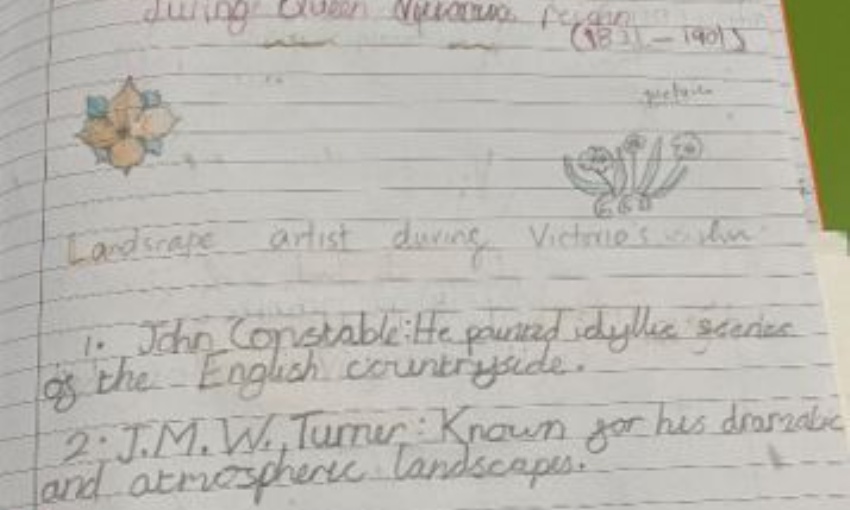 during Queen Victoria reign
(1831 - 1901)
picture
Landscape artist during Victoria's
1. John Constable: He painted idyllic scenes
of the English countryside.
2. J.M.W. Turner: Known for his dramatic
and atmospheric landscapes.